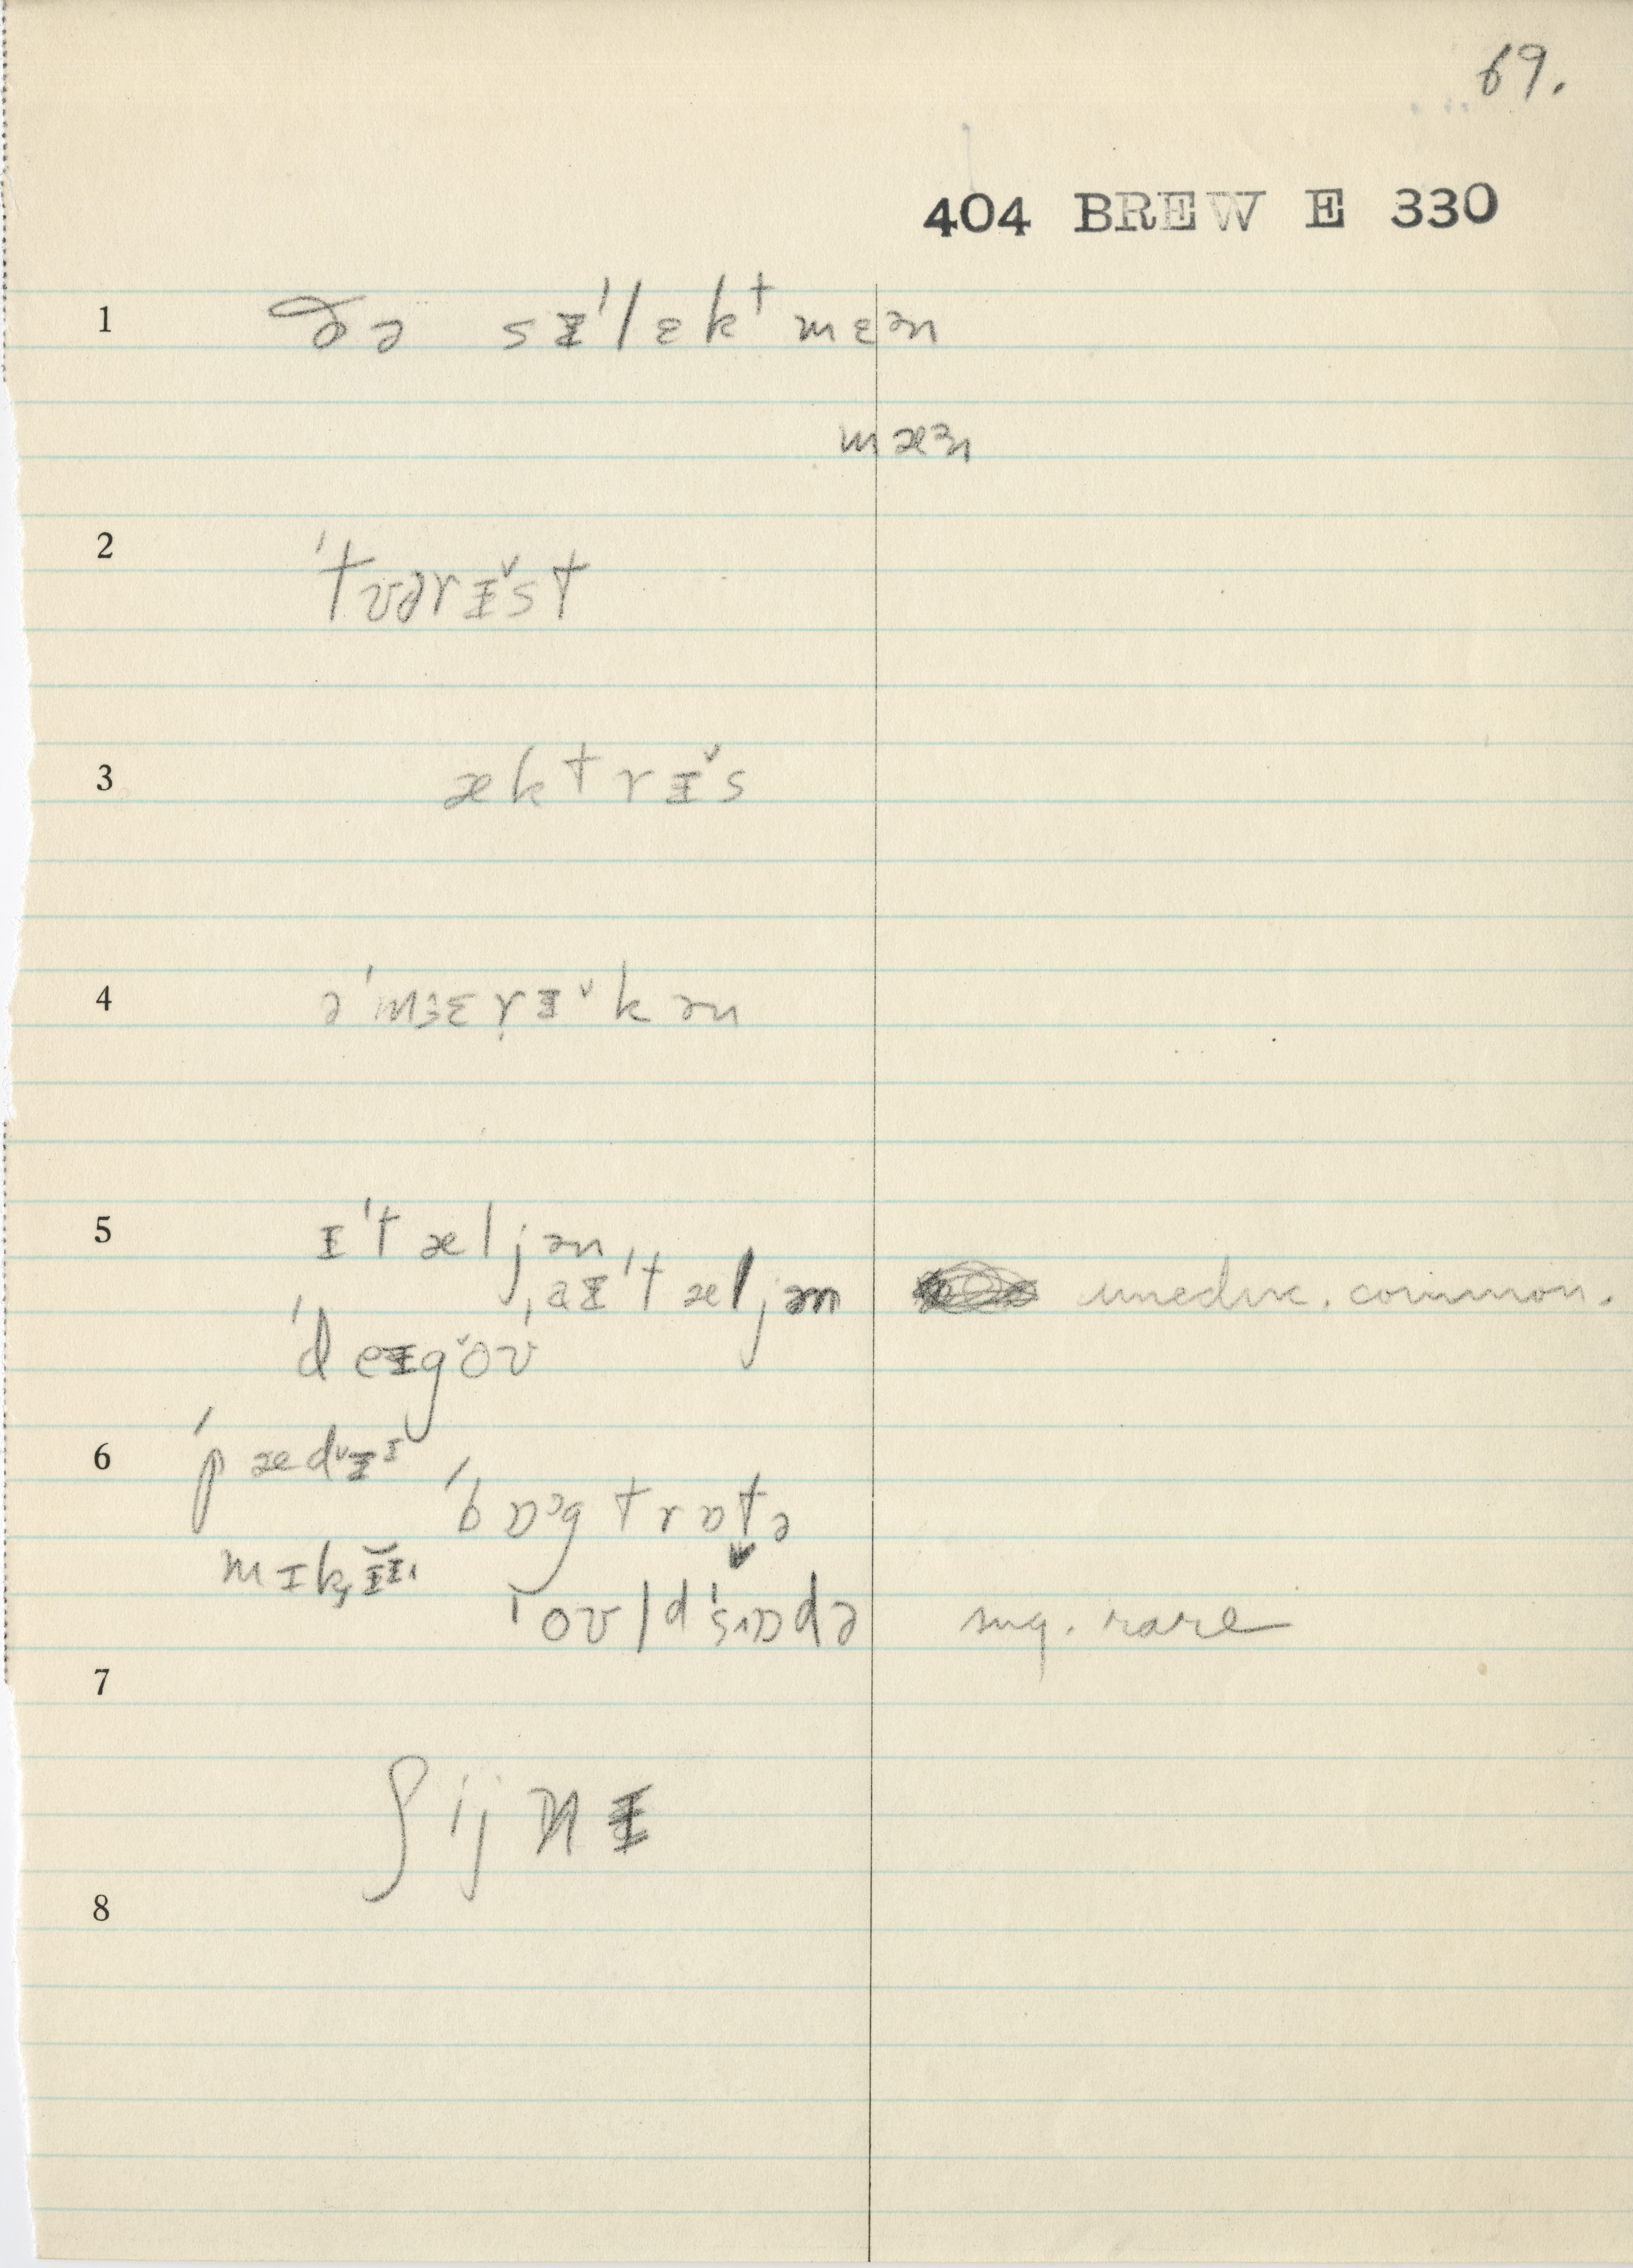 69.
404 BREW E 330
1 ðə sɨˈlɛkᵗmɛən
mæɜn
2 ˈtʊərɨ̌st
3 æktrɨ̌s
4 əˈmɜɛrɨ̌kən
5 ɨˈtæljən,
ˌaɨˈtæljən uneduc. common.
ˈdeɨgǒʊ
6 ˈpædɨ̌ɪ
ˈbɒᵊgtrɒtə
mɪk,
ˈoʊldˈsɒdə sug. rare
7
ʃijnɨ
8